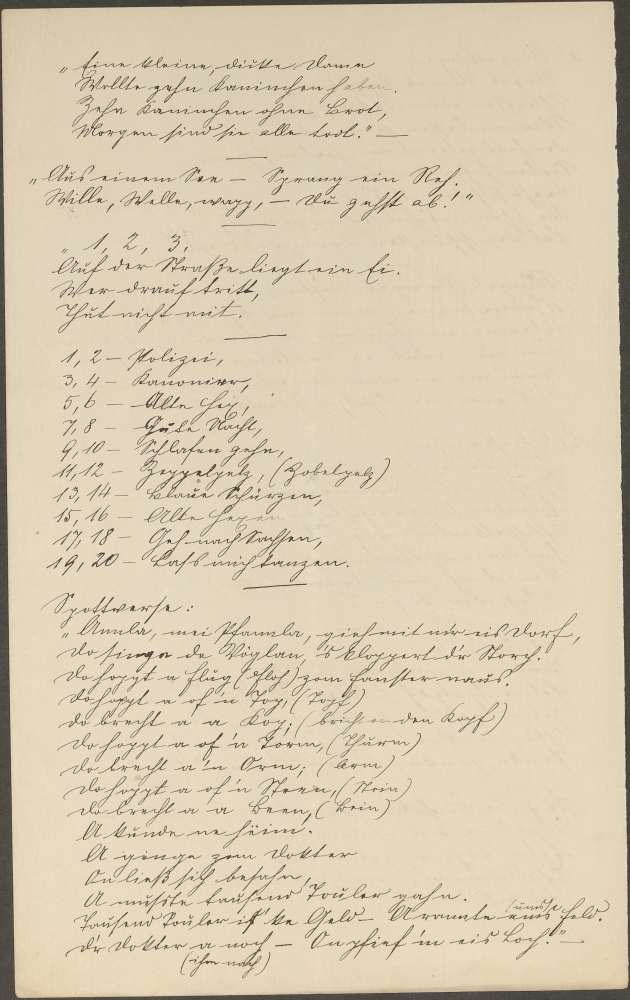 „Eine kleine, dicke Dame
Wollte zehn Kaninchen haben.
Zehn Kaninchen ohne Brot,
Morgen sind sie alle todt.“ —
„Aus einem See — Sprang ein Reh.
Wille, Welle, wapp, — Du gehst ab!“
„1, 2, 3,
Auf der Straße liegt ein Ei.
Wer drauf tritt,
Thut nicht mit.
1, 2 — Polizei,
3, 4 — Kanonier,
5, 6 — Alte Hex,
7, 8 — Gute Nacht,
9, 10 — Schlafen gehn,
11, 12 — Zeppelpelz, (Zobelpelz)
13, 14 — Blaue Schürzen,
15, 16 — Alte Hexen
17, 18 — Geh nach Sachsen,
19, 20 — Lass mich tanzen.
Spottverse:
„Annla, mei Pfannla, zieh mit mir eis Dorf,
Do singa de Vöglan, 's kloppert d'r Storch.
Do hoppt a Flug (Floh) zom Fanster naus.
Do hoppt a of 'n Top, (Topf)
do brecht a a Kop; (bricht er den Kopf)
Do hoppt a of 'n Torm, (Thurm)
Do brecht a 'n Orm; (Arm)
Do hoppt a of 'n Steen, (Stein)
Do brecht a a Been, (Bein)
A kunde ne heim.
A ginge zom Dokter
On ließ sich besahn,
A mußte tausend Touler gahn.
Tausend Touler is ke Geld — A rannte ems Feld.
D'r Dokter a noch — On pfief 'm eis Loch.“ —
(ihm nach)